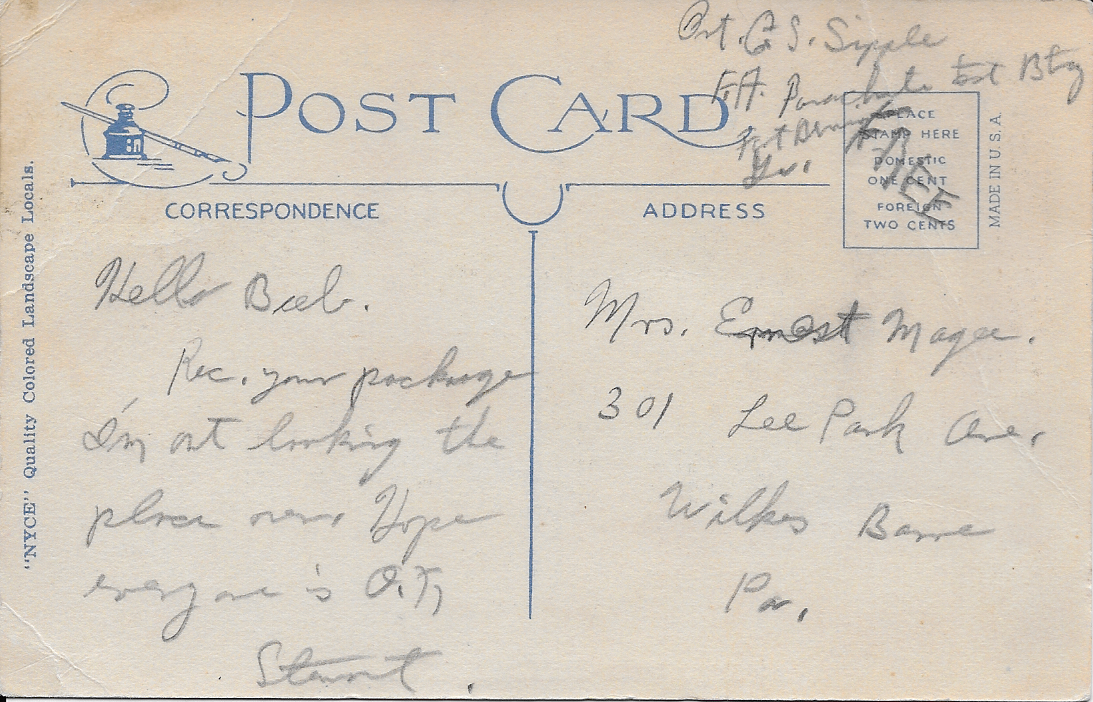 Pvt. G. S. Sipple
F.A. Parachute Test Btry
Fort Benning
Ga.
POST CARD
PLACE
STAMP HERE
DOMESTIC
ONE CENT
FOREIGN
TWO CENTS
FREE
MADE IN U.S.A.
CORRESPONDENCE
ADDRESS
"NYCE" Quality Colored Landscape Locals.
Hello Bieb.
Rec. your package
I'm out looking the
place over Hope
everyone is O.K,
Stewart.
Mrs. Ernest Magee.
301 Lee Park Ave,
Wilkes Barre
Pa,